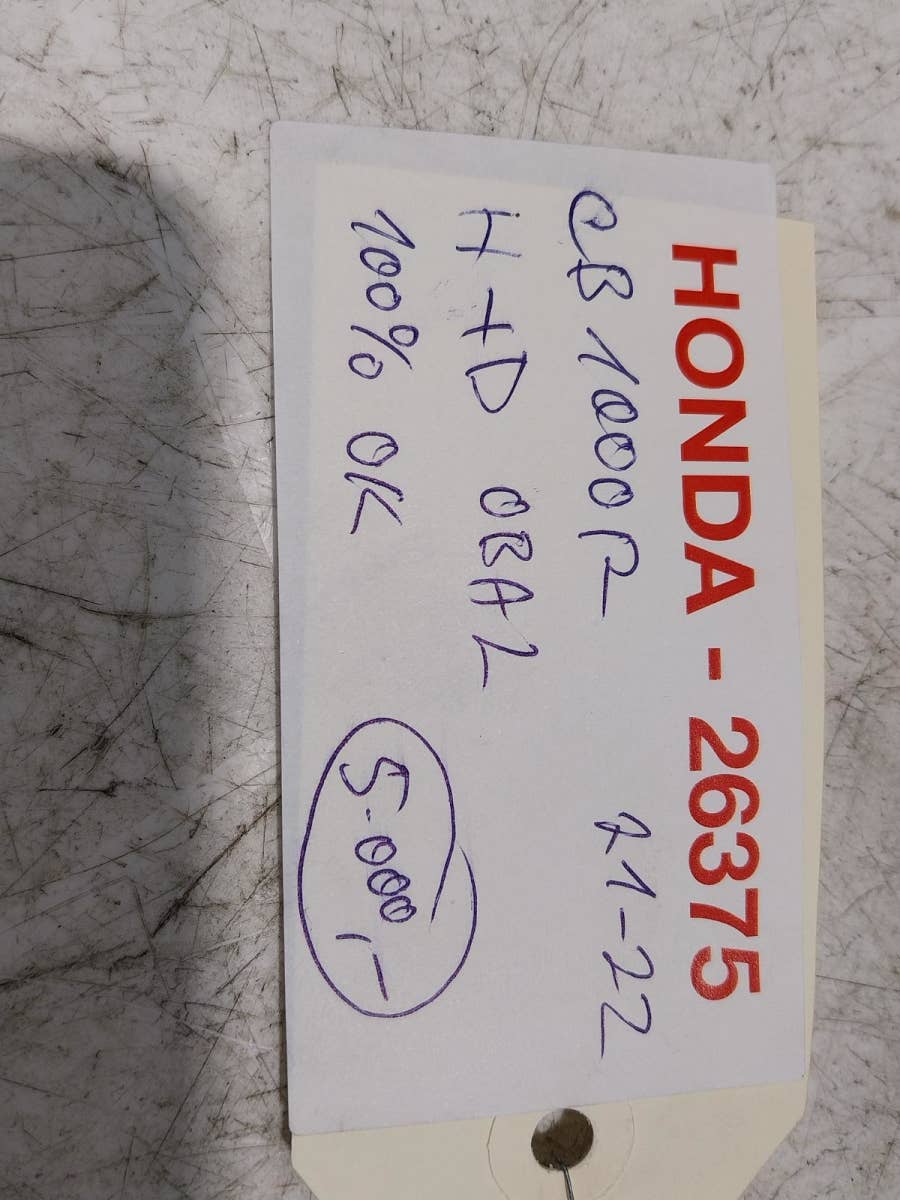 HONDA - 26375
CB 1000R 21-22
H+D OBAL
100% OK 5.000,-